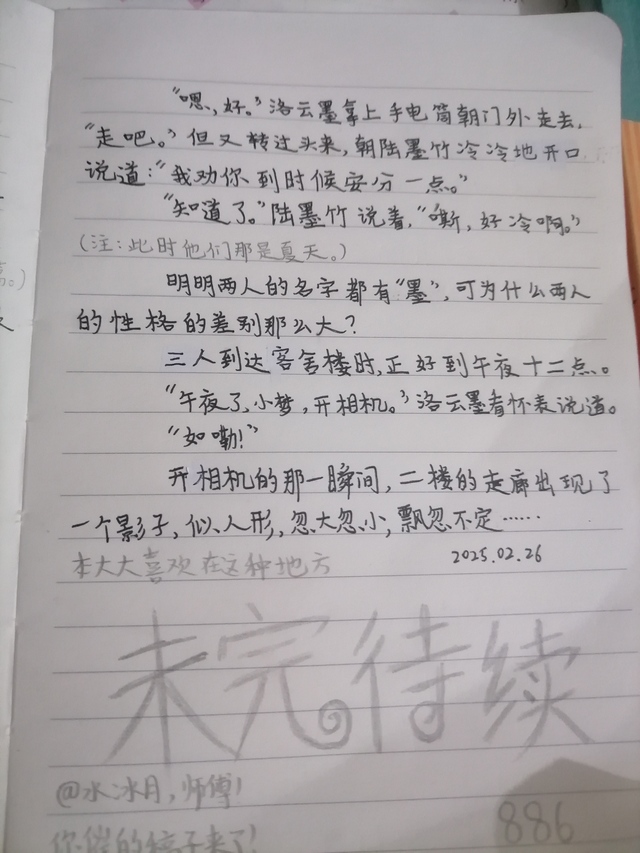 “嗯,好。”洛云墨拿上手电筒朝门外走去,
“走吧。”但又转过头来,朝陆墨竹冷冷地开口
说道:“我劝你到时候安分一点。”
“知道了。”陆墨竹说着,“嘶,好冷啊。”
(注:此时他们那是夏天。)
明明两人的名字都有“墨”,可为什么两人
的性格的差别那么大?
三人到达客舍楼时,正好到午夜十二点。
“午夜了,小梦,开相机。”洛云墨看怀表说道。
“如嘞!”
开相机的那一瞬间,二楼的走廊出现了
一个影子,似人形,忽大忽小,飘忽不定……
本大大喜欢在这种地方
2025.02.26
未完待续
@水冰月,师傅!
你催的稿子来了!
886